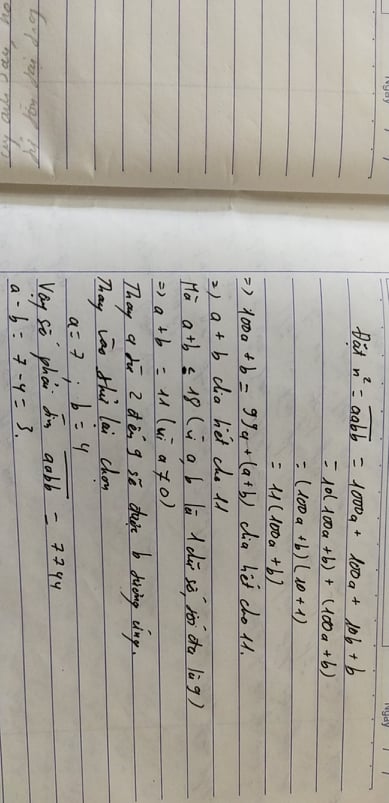 Ngày
Ngày
Đặt n² = aabb = 1000a + 100a + 10b + b
= 10(100a + b) + (100a + b)
= (100a + b)(10 + 1)
= 11(100a + b)
=> 100a + b = 99a + (a+b) chia hết cho 11.
=> a + b chia hết cho 11
Mà a+b ≤ 18 (vì a, b là 1 chữ số, tối đa là 9)
=> a + b = 11 (vì a ≠ 0)
Thay a từ 2 đến 9 sẽ được b tương ứng.
Thay vào thử lại chọn
a = 7 ; b = 4
Vậy số phải tìm aabb = 7744
a - b = 7 - 4 = 3.